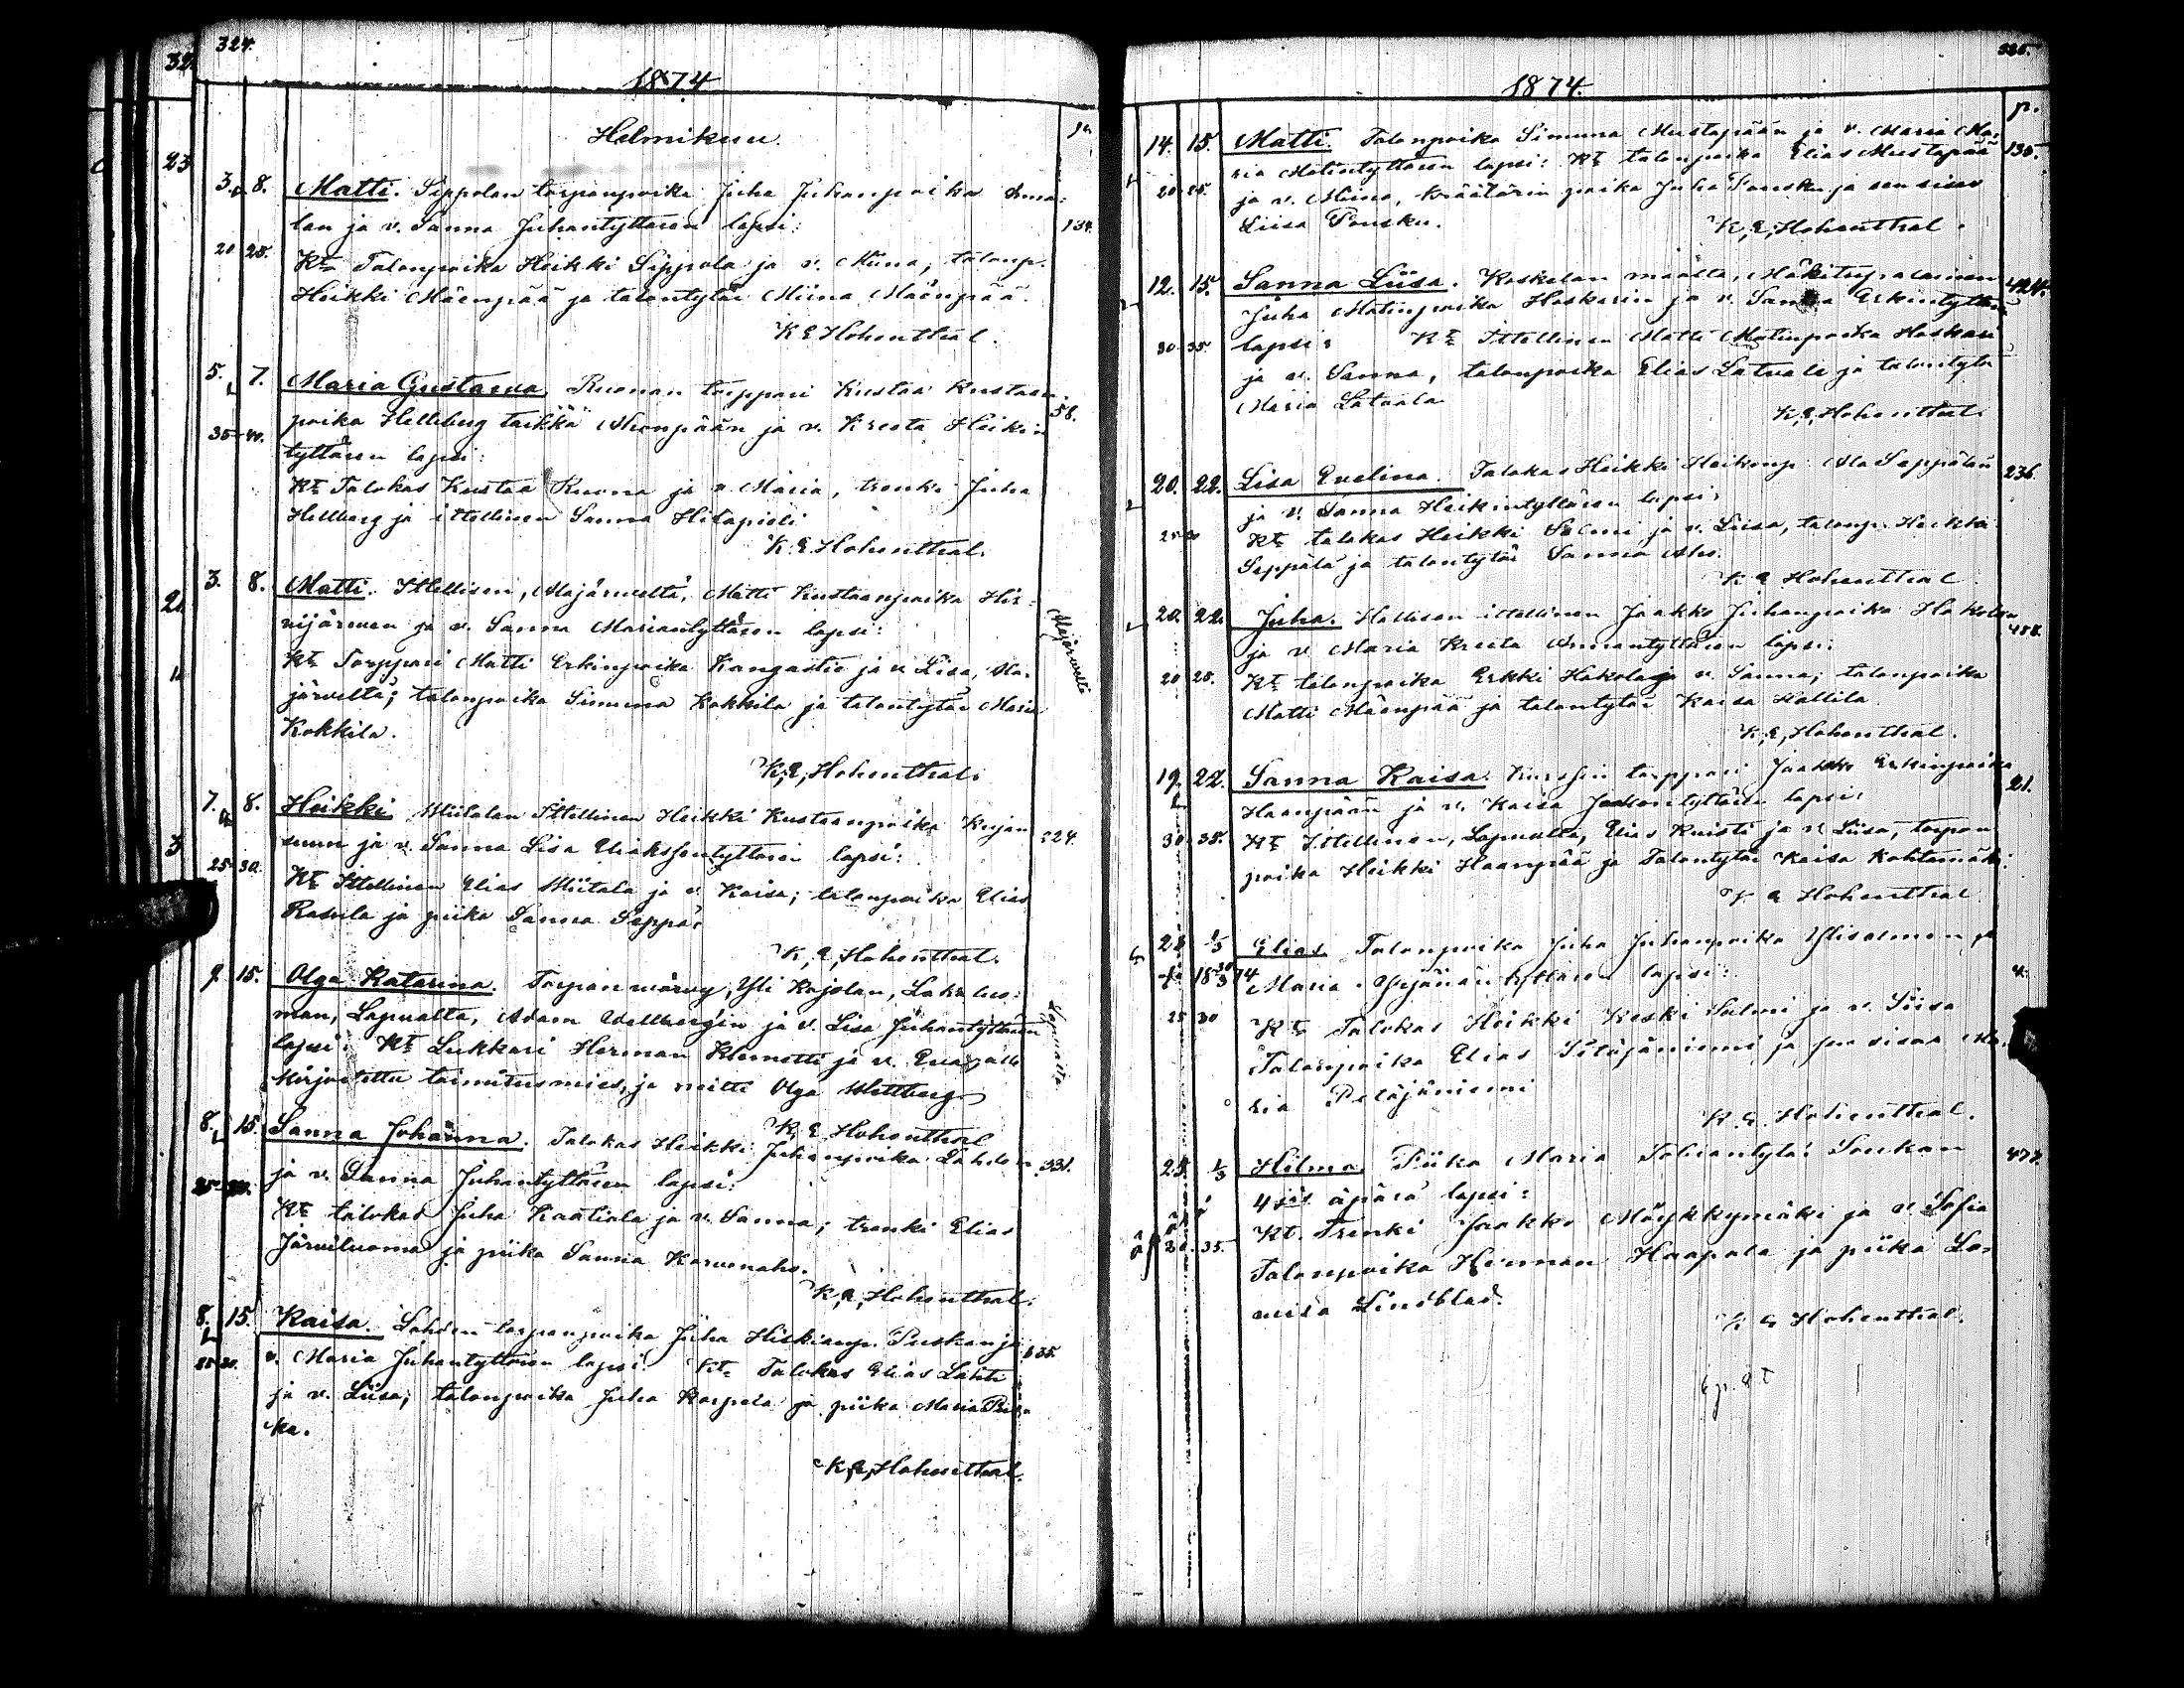 324.
1874
Helmikuu.
3. 8. Matti. Sippolan torpanpoika Juha Juhanpoika
lan ja v. Sanna Juhantyttären lapsi: 134.
20 25. Kt. Talonpoika Heikki Sippola ja v. Miina, talonp.
Heikki Mäenpää ja talontytär Miina Mäenpää.
K E Hohenthal.
5. 7. Maria Gustava. Ruonan torppari Kustaa Kustaan-
poika Hellberg taikka ja v. Kreeta Heikin 58.
35-40. tyttären lapsi:
Kt. Talokas Kustaa Ruona ja v. Maria, trenki Juha
Hellberg ja ittellinen Sanna
K. E. Hohenthal.
3. 8. Matti. Ittellisen, Alajärveltä, Matti Kustaanpoika Hir-
vijärven ja v. Sanna Mariantyttären lapsi: Alajärvelti
Kt. Torppari Matti Erkinpoika Kangastie ja v. Lisa, Ala-
järveltä; talonpoika Simuna Kokkila ja talontytär Maria
Kokkila.
K, E, Hohenthal.
7. 8. Heikki. Wiitalan Ittellinen Heikki Kustaanpoika Kujan
suun ja v. Sanna Lisa tyttären lapsi: 224.
25-30. Kt. Ittellinen Elias Wiitala ja v. Kaisa; talonpoika Elias
ja piika Sanna Seppä.
K, E, Hohenthal.
9. 15. Olga Katarina. Torpan Yli Kajolan,
man, Lapualta, Adam ja v. Lisa Juhantyttären
lapsi: Kt. Lukkari Herman Klemetti ja v. Eva, Lapualta
toimitusmies, ja neitti Olga
K, E Hohenthal
8. 15. Sanna Johanna. Talokas Heikki Juhanpoika Lahden 331.
ja v. Sanna Juhantyttären lapsi:
Kt. talokas Juha Kaatiala ja v. Sanna; trenki Elias
Järviluoma ja piika Sanna Karvonaho.
K, E, Hohenthal.
8. 15. Kaisa. Lahden torpanpoika Juha Hiskianp. Puskan ja 335.
25-30. v. Maria Juhantyttären lapsi. Kt. Talokas Elias Lahti
ja v. Liisa; talonpoika Juha Karpela ja piika Maria Pus-
ka.
K, E, Hohenthal.
325.
1874.
p.
14. 15. Matti. Talonpoika Simuna Mustapään ja v. Maria Ma-
ria Matintyttären lapsi: Kt. talonpoika Elias Mustapää 135.
20 25. ja v. Miina, Kräätärin poika Juha Pousku ja sen sisar
Liisa Pousku.
K, E, Hohenthal.
12. 15. Sanna Liisa. Koskelan maalta, Mäkitupalainen 424.
Juha Matinpoika Haskarin ja v. Sanna Erkintyttären
30-35. lapsi: Kt. Ittellinen Matti Matinpoika Haskari
ja v. Sanna, talonpoika Elias Latvala ja talontytär
Maria Latvala
K, E, Hohenthal.
20. 22. Lisa Evelina. Talokas Heikki Heikinp. Ala Seppälän 236.
ja v. Sanna Heikintyttären lapsi:
25 30 Kt. talokas Heikki Salmi ja v. Liisa, talonp. Heikki
Seppälä ja talontytär Sanna
K E Hohenthal
20. 22. Juha. Hallisen ittellinen Jaakko Juhanpoika Hakolan
ja v. Maria Kreeta Annantyttären lapsi:
20 25. Kt. talonpoika Erkki Hakola ja v. Sanna; talonpoika
Matti Mäenpää ja talontytär Kaisa Hallila.
K, E, Hohenthal.
19. 22. Sanna Kaisa. torppari Jaakko Erkinpoika
Haanpään ja v. Kaisa Jaakontyttären lapsi: 21.
30-35. Kt. Ittellinen, Lapualta, Elias Ruisti ja v. Liisa, torpan
poika Heikki Haanpää ja Talontytär Kaisa Kohtamäki.
K E Hohenthal.
28 1/3 Elias. Talonpoika Juha Juhanpoika Ylisalmen ja
18 30/3 74 Maria Yrjänäntyttären lapsi: 4.
25 30 Kt. Talokas Heikki Keski Salmi ja v. Liisa
Talonpoika Elias Petäjäniemi ja sen sisar Ma-
ria Petäjäniemi
K. E. Hohenthal.
25. 1/3 Hilma. Piika Maria Soukan 477.
4:s äpärä lapsi:
Kt. Trenki Jaakko Möykkymäki ja v. Sofia
30. 35. Talonpoika Herman Haapala ja piika Lo-
viisa Lindblad.
K E Hohenthal.